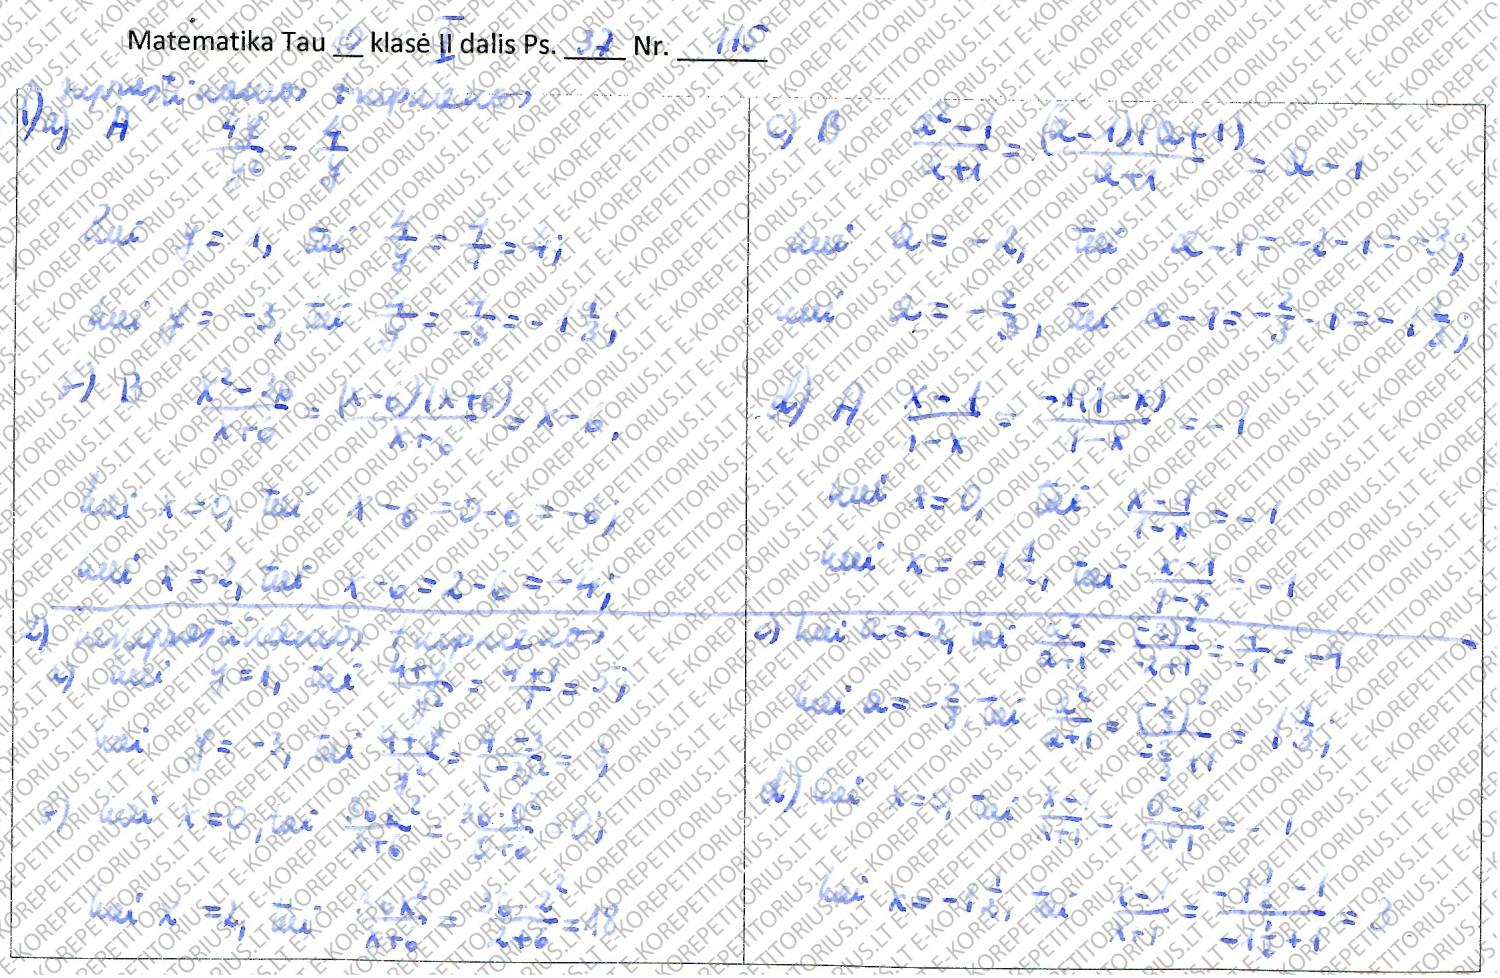 Matematika Tau 10 klasė II dalis Ps. 37 Nr. 115
1) suprastinamos trupmenos
a) A 4y/y² = 4/y
kai y = 1, tai 4/y = 4/1 = 4;
kai y = -3, tai 4/y = 4/-3 = -1 1/3;
B x²-36/x+6 = (x-6)(x+6)/x+6 = x-6,
kai x=0, tai x-6=0-6=-6;
kai x=2, tai x-6=2-6=-4;
c) B a²-1/a+1 = (a-1)(a+1)/a+1 = a-1
kai a=-2, tai a-1=-2-1=-3;
kai a=-2/3, tai a-1=-2/3-1=-1 2/3;
d) A x-1/1-x = -1(1-x)/1-x = -1
kai x=0, tai x-1/1-x = -1
kai x=-1 1/2, tai x-1/1-x = -1
2) nesuprastinamos trupmenos
a) kai y=1, tai 4+y/y² = 4+1/1 = 5;
kai x=0, tai 36x²/x+6 = 36·0²/0+6 = 0;
kai x=2, tai 36x²/x+6 = 36·2²/2+6 = 18
c) kai a=-2, tai a²/a+1 = (-2)²/-2+1 = 4/-1 = -4
kai a=-2/3, tai a²/a+1 = (-2/3)²/-2/3+1 = 1 1/3;
d) kai x=0, tai x-1/x+1 = 0-1/0+1 = -1
kai x=-1 1/2, tai x-1/x+1 = -1 1/2-1/-1 1/2+1 =